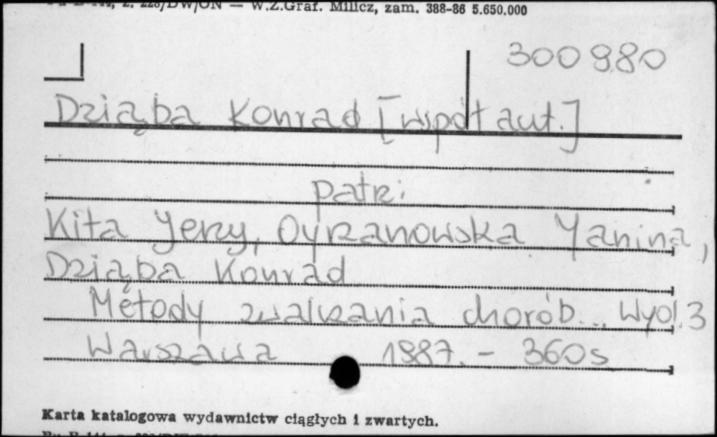 zam. 388-86 5.650.000
W.Z.Graf. Milicz,
300980
Dziąba Konrad [współaut.]
patrz:
Kita Jerzy, Oyrzanowska Janina,
Dziąba Konrad
Metody zwalczania chorób... Wyd.3
Warszawa 1987. - 360s
Karta katalogowa wydawnictw ciągłych i zwartych.